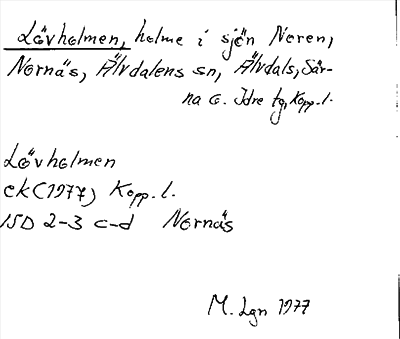 Lövholmen, holme i sjön Noren,
Nornäs, Älvdalens sn, Älvdals, Sär-
na o. Idre tg, Kopp. l.
Lövholmen
ek (1977) Kopp. l.
15D 2-3 c-d Nornäs
M. Lgn 1977